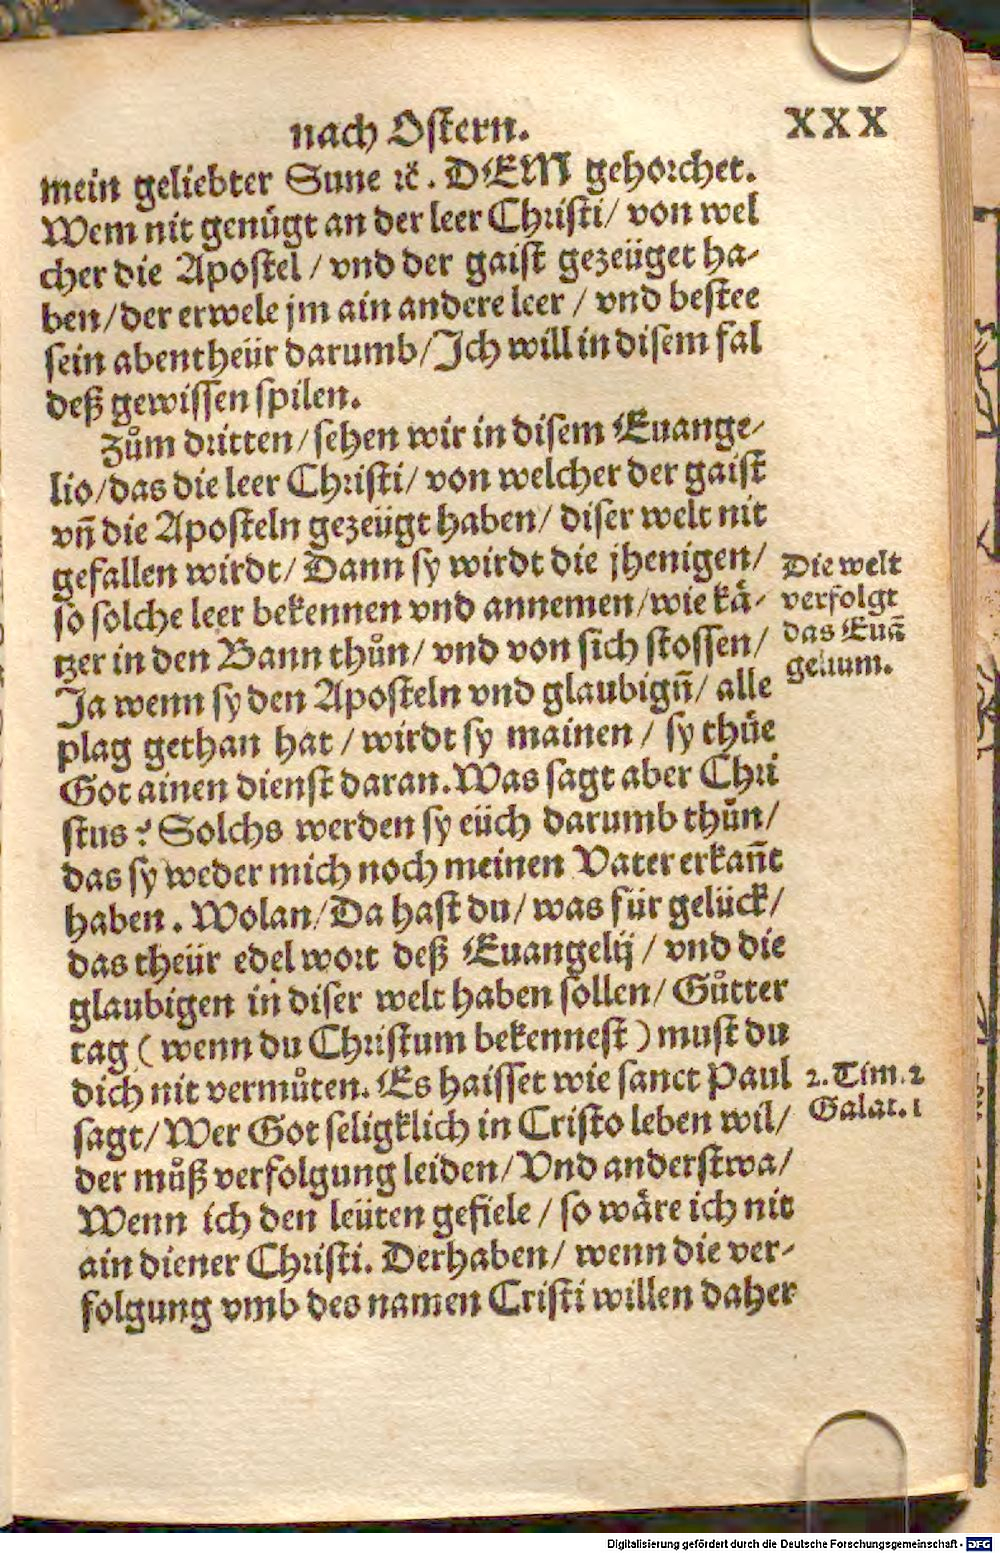 nach Ostern. XXX
mein geliebter Sune ꝛc̃. DEM gehorchet.
Wem nit genůgt an der leer Christi/ von wel
cher die Apostel / vnd der gaist gezeüget ha-
ben/der erwele jm ain andere leer / vnd bestee
sein abentheür darumb/Jch will in disem fal
deß gewissen spilen.
Zům dritten/sehen wir in disem Euange-
lio/das die leer Christi/ von welcher der gaist
vñ die Aposteln gezeügt haben/ diser welt nit
gefallen wirdt/ Dann sy wirdt die jhenigen/
so solche leer bekennen vnd annemen/wie kä-
tzer in den Bann thůn/ vnd von sich stossen/
Ja wenn sy den Aposteln vnd glaubigñ/ alle
plag gethan hat / wirdt sy mainen / sy thüe
Got ainen dienst daran. Was sagt aber Chri
stus? Solchs werden sy eüch darumb thůn/
das sy weder mich noch meinen Vater erkañt
haben. Wolan/Da hast du/ was für gelück/
das theür edel wort deß Euangelij / vnd die
glaubigen in diser welt haben sollen/ Gůtter
tag ( wenn du Christum bekennest ) must du
dich nit vermůten. Es haisset wie sanct Paul
sagt/Wer Got seligklich in Cristo leben wil/
der můß verfolgung leiden/Vnd anderstwa/
Wenn ich den leüten gefiele / so wäre ich nit
ain diener Christi. Derhaben/ wenn die ver-
folgung vmb des namen Cristi willen daher
Die welt
verfolgt
das Euã
gelium.
2. Tim. 2
Galat. 1
Digitalisierung gefördert durch die Deutsche Forschungsgemeinschaft - DFG